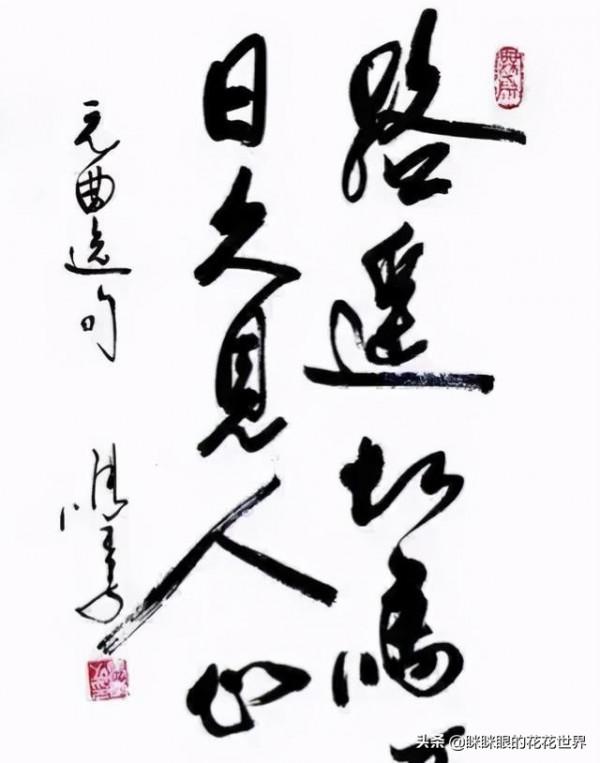 路遥知馬
日久見人心
元曲选句
头条 @眯眯眼的花花世界